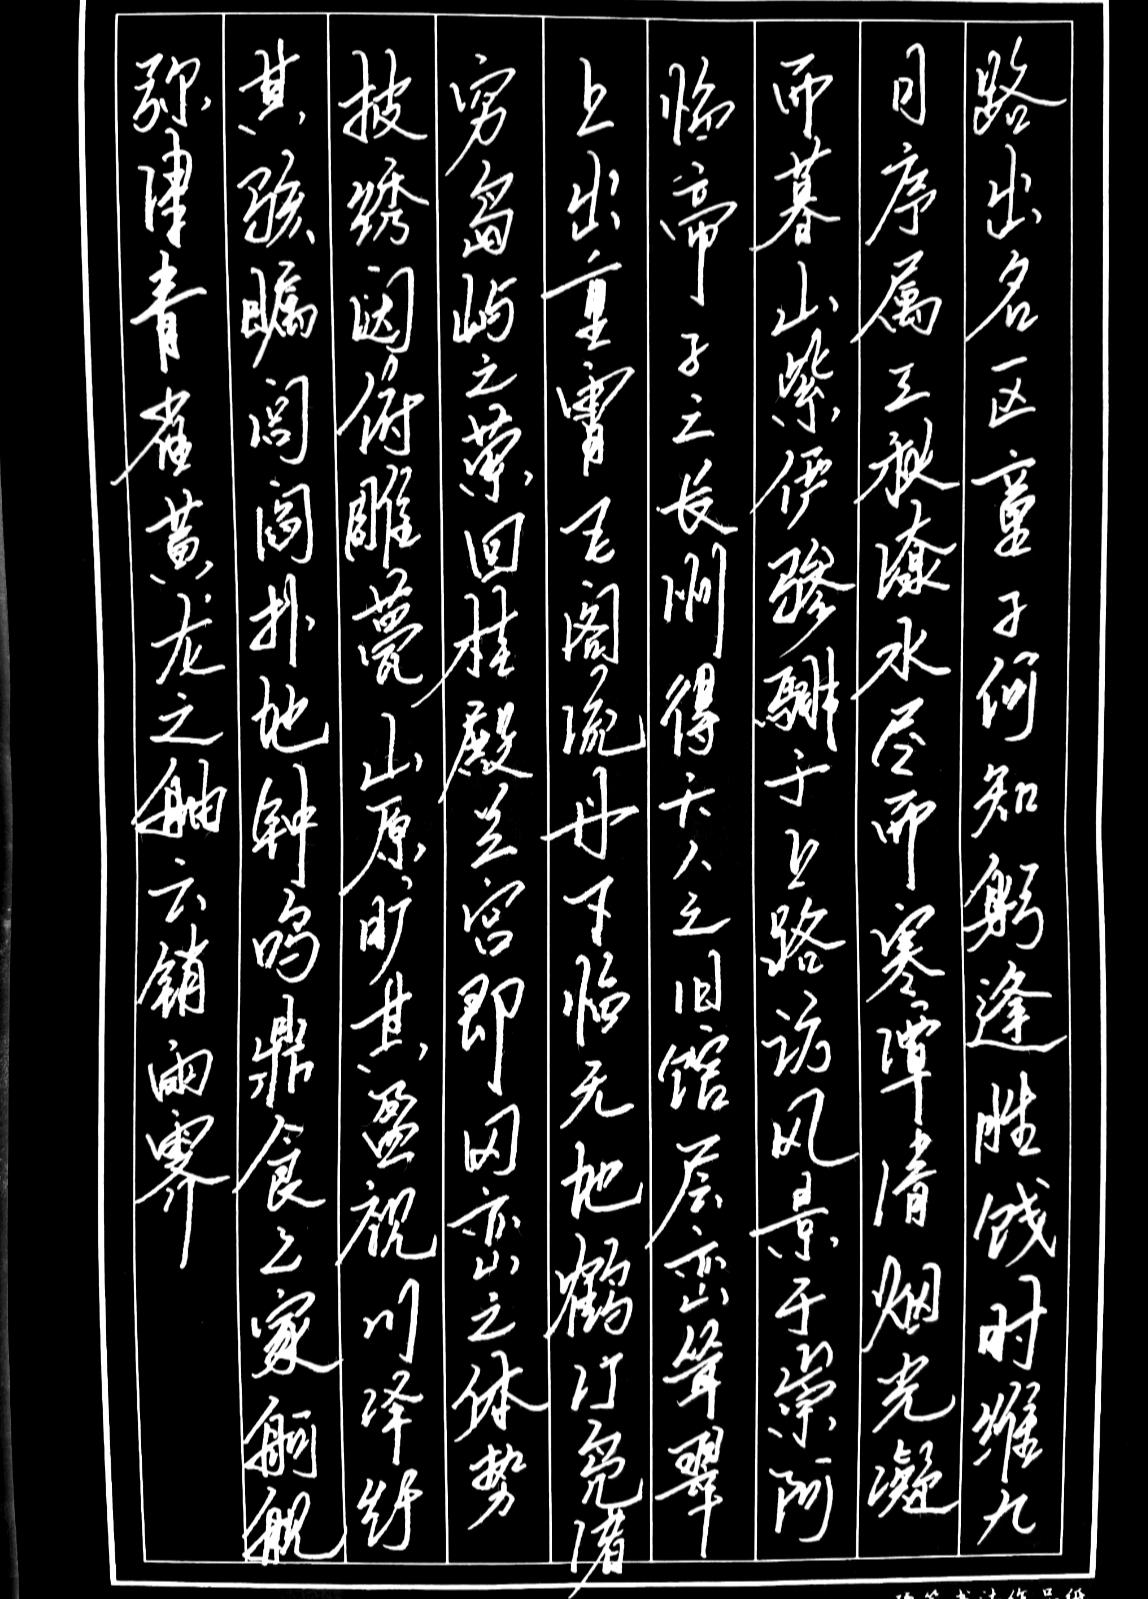 路出名区童子何知躬逢胜饯时维九
月序属三秋潦水尽而寒潭清烟光凝
而暮山紫俨骖騑于上路访风景于崇阿
临帝子之长洲得天人之旧馆层峦耸翠
上出重霄飞阁流丹下临无地鹤汀凫渚
穷岛屿之萦回桂殿兰宫即冈峦之体势
披绣闼俯雕甍山原旷其盈视川泽纡
其骇瞩闾阎扑地钟鸣鼎食之家舸舰
弥津青雀黄龙之舳云销雨霁